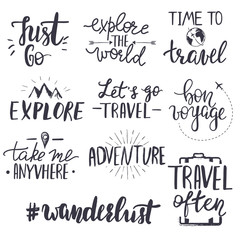 Just
Go
explore
THE
world
TIME TO
travel
EXPLORE
Let's go
TRAVEL
bon
voyage
take me
ANYWHERE
ADVENTURE
TRAVEL
often
#wanderlust